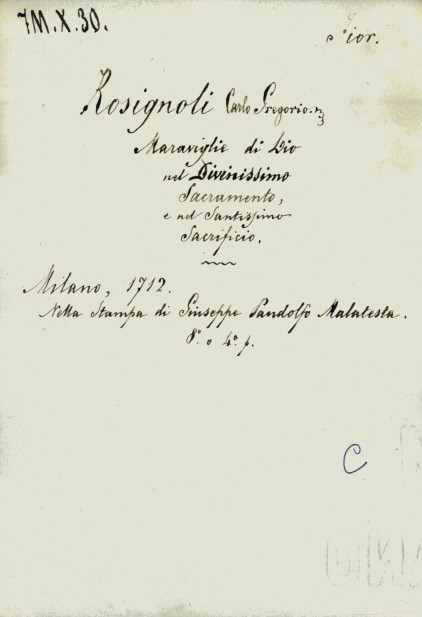 7M.X.30.
Rosignoli Carlo Gregorio.
Maraviglie di Dio
nel Divinissimo
Sacramento,
e nel Santissimo
Sacrificio.
Milano, 1712.
Nella Stampa di Giuseppe Pandolfo Malatesta.
8.° o 4.° p.
C